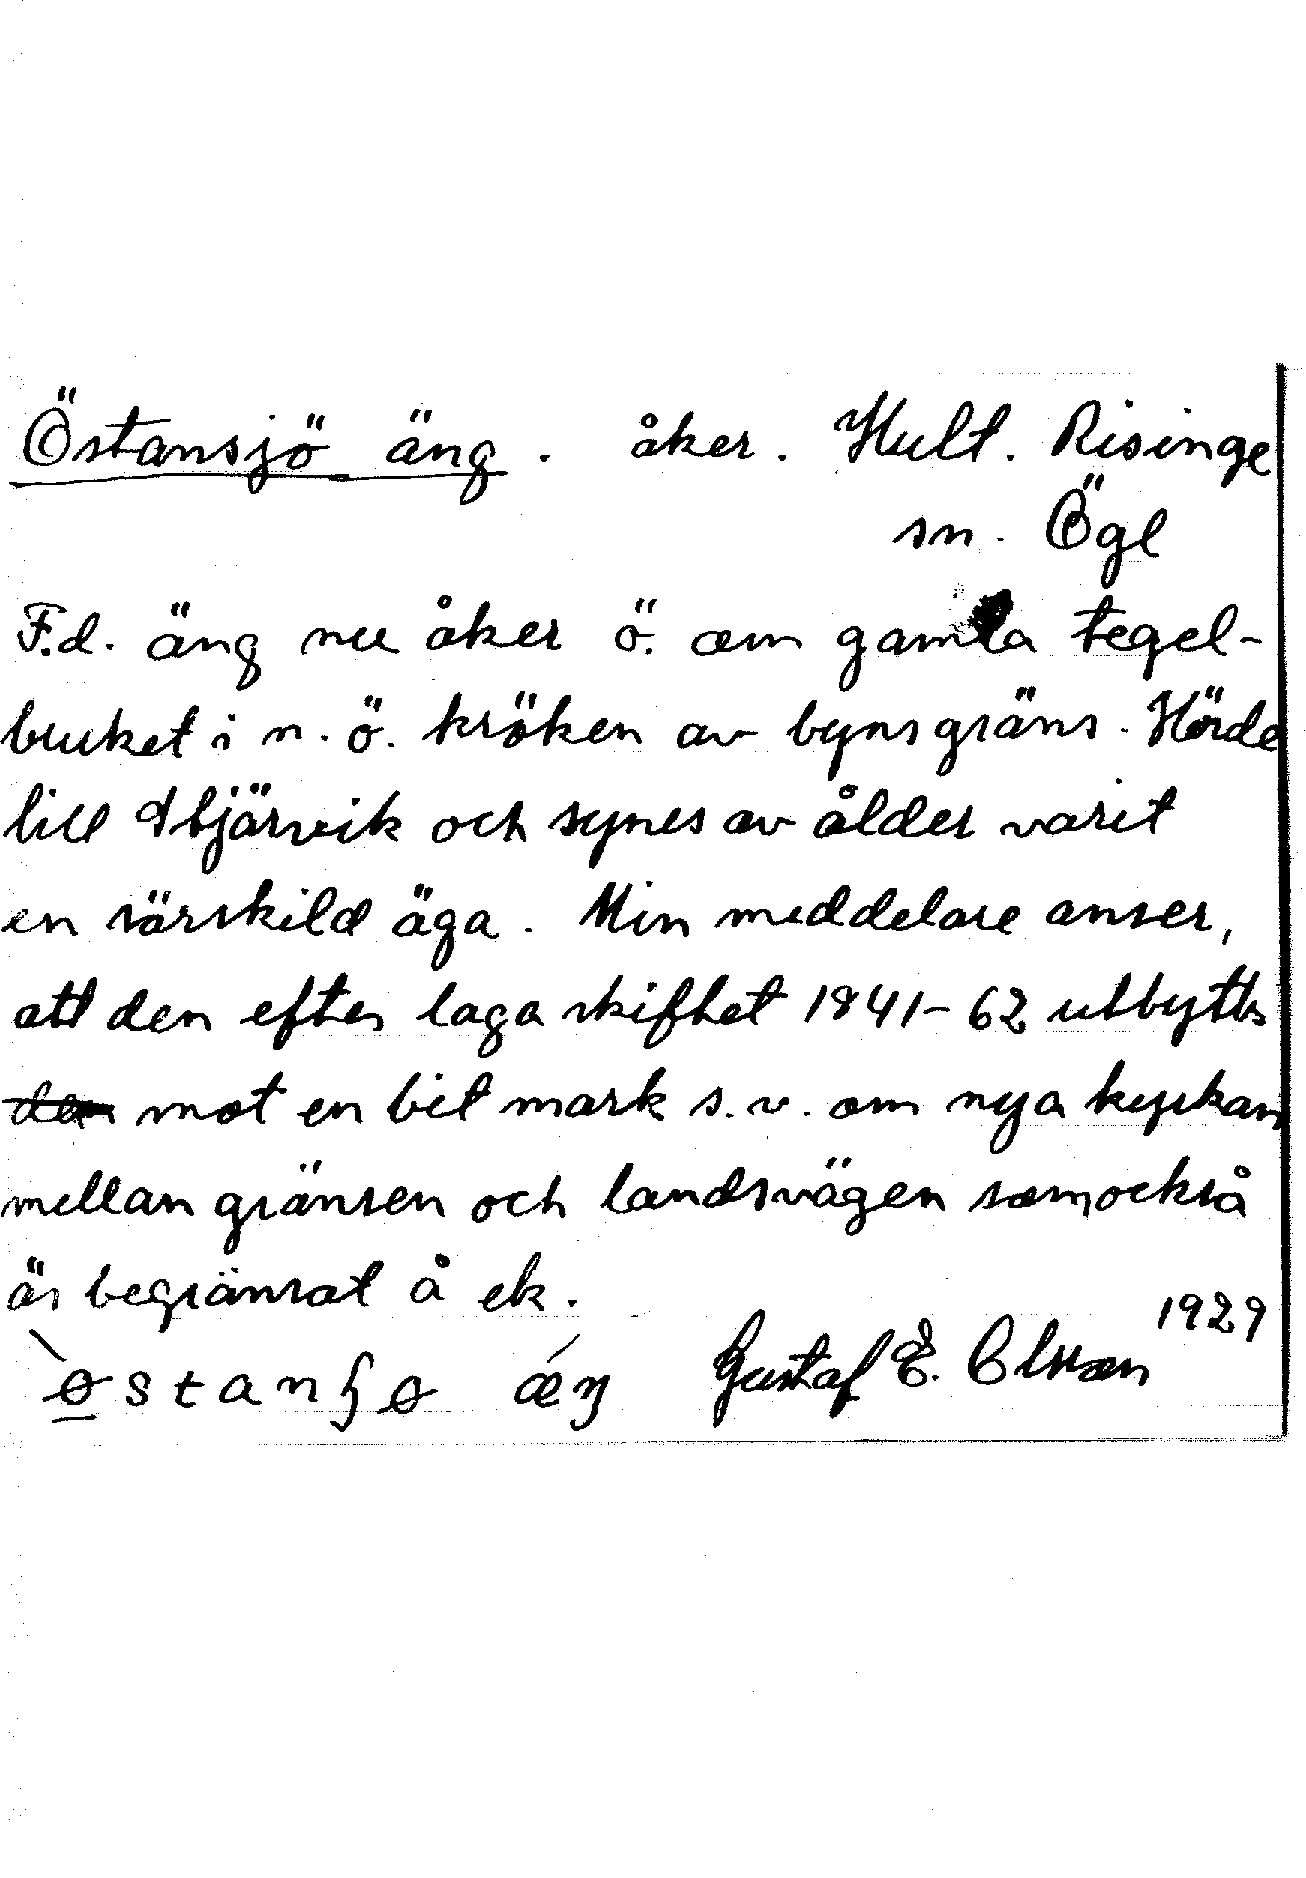 Östansjö äng. åker. Hult. Risinge
sn. Ögl
F.d. äng nu åker ö. om gamla tegel-
bruket i n.ö. kröken av byns gräns. Hörde
till Abjärvik och synes av ålder varit
en särskild äga. Min meddelare anser,
att den efter laga skiftet 1841-62 utbytts
den mot en bit mark s.v. om nya kyrkan
mellan gränsen och landsvägen som också
är begränsat å ek.
1929
østanʃø æŋ Gustaf E. Olsson